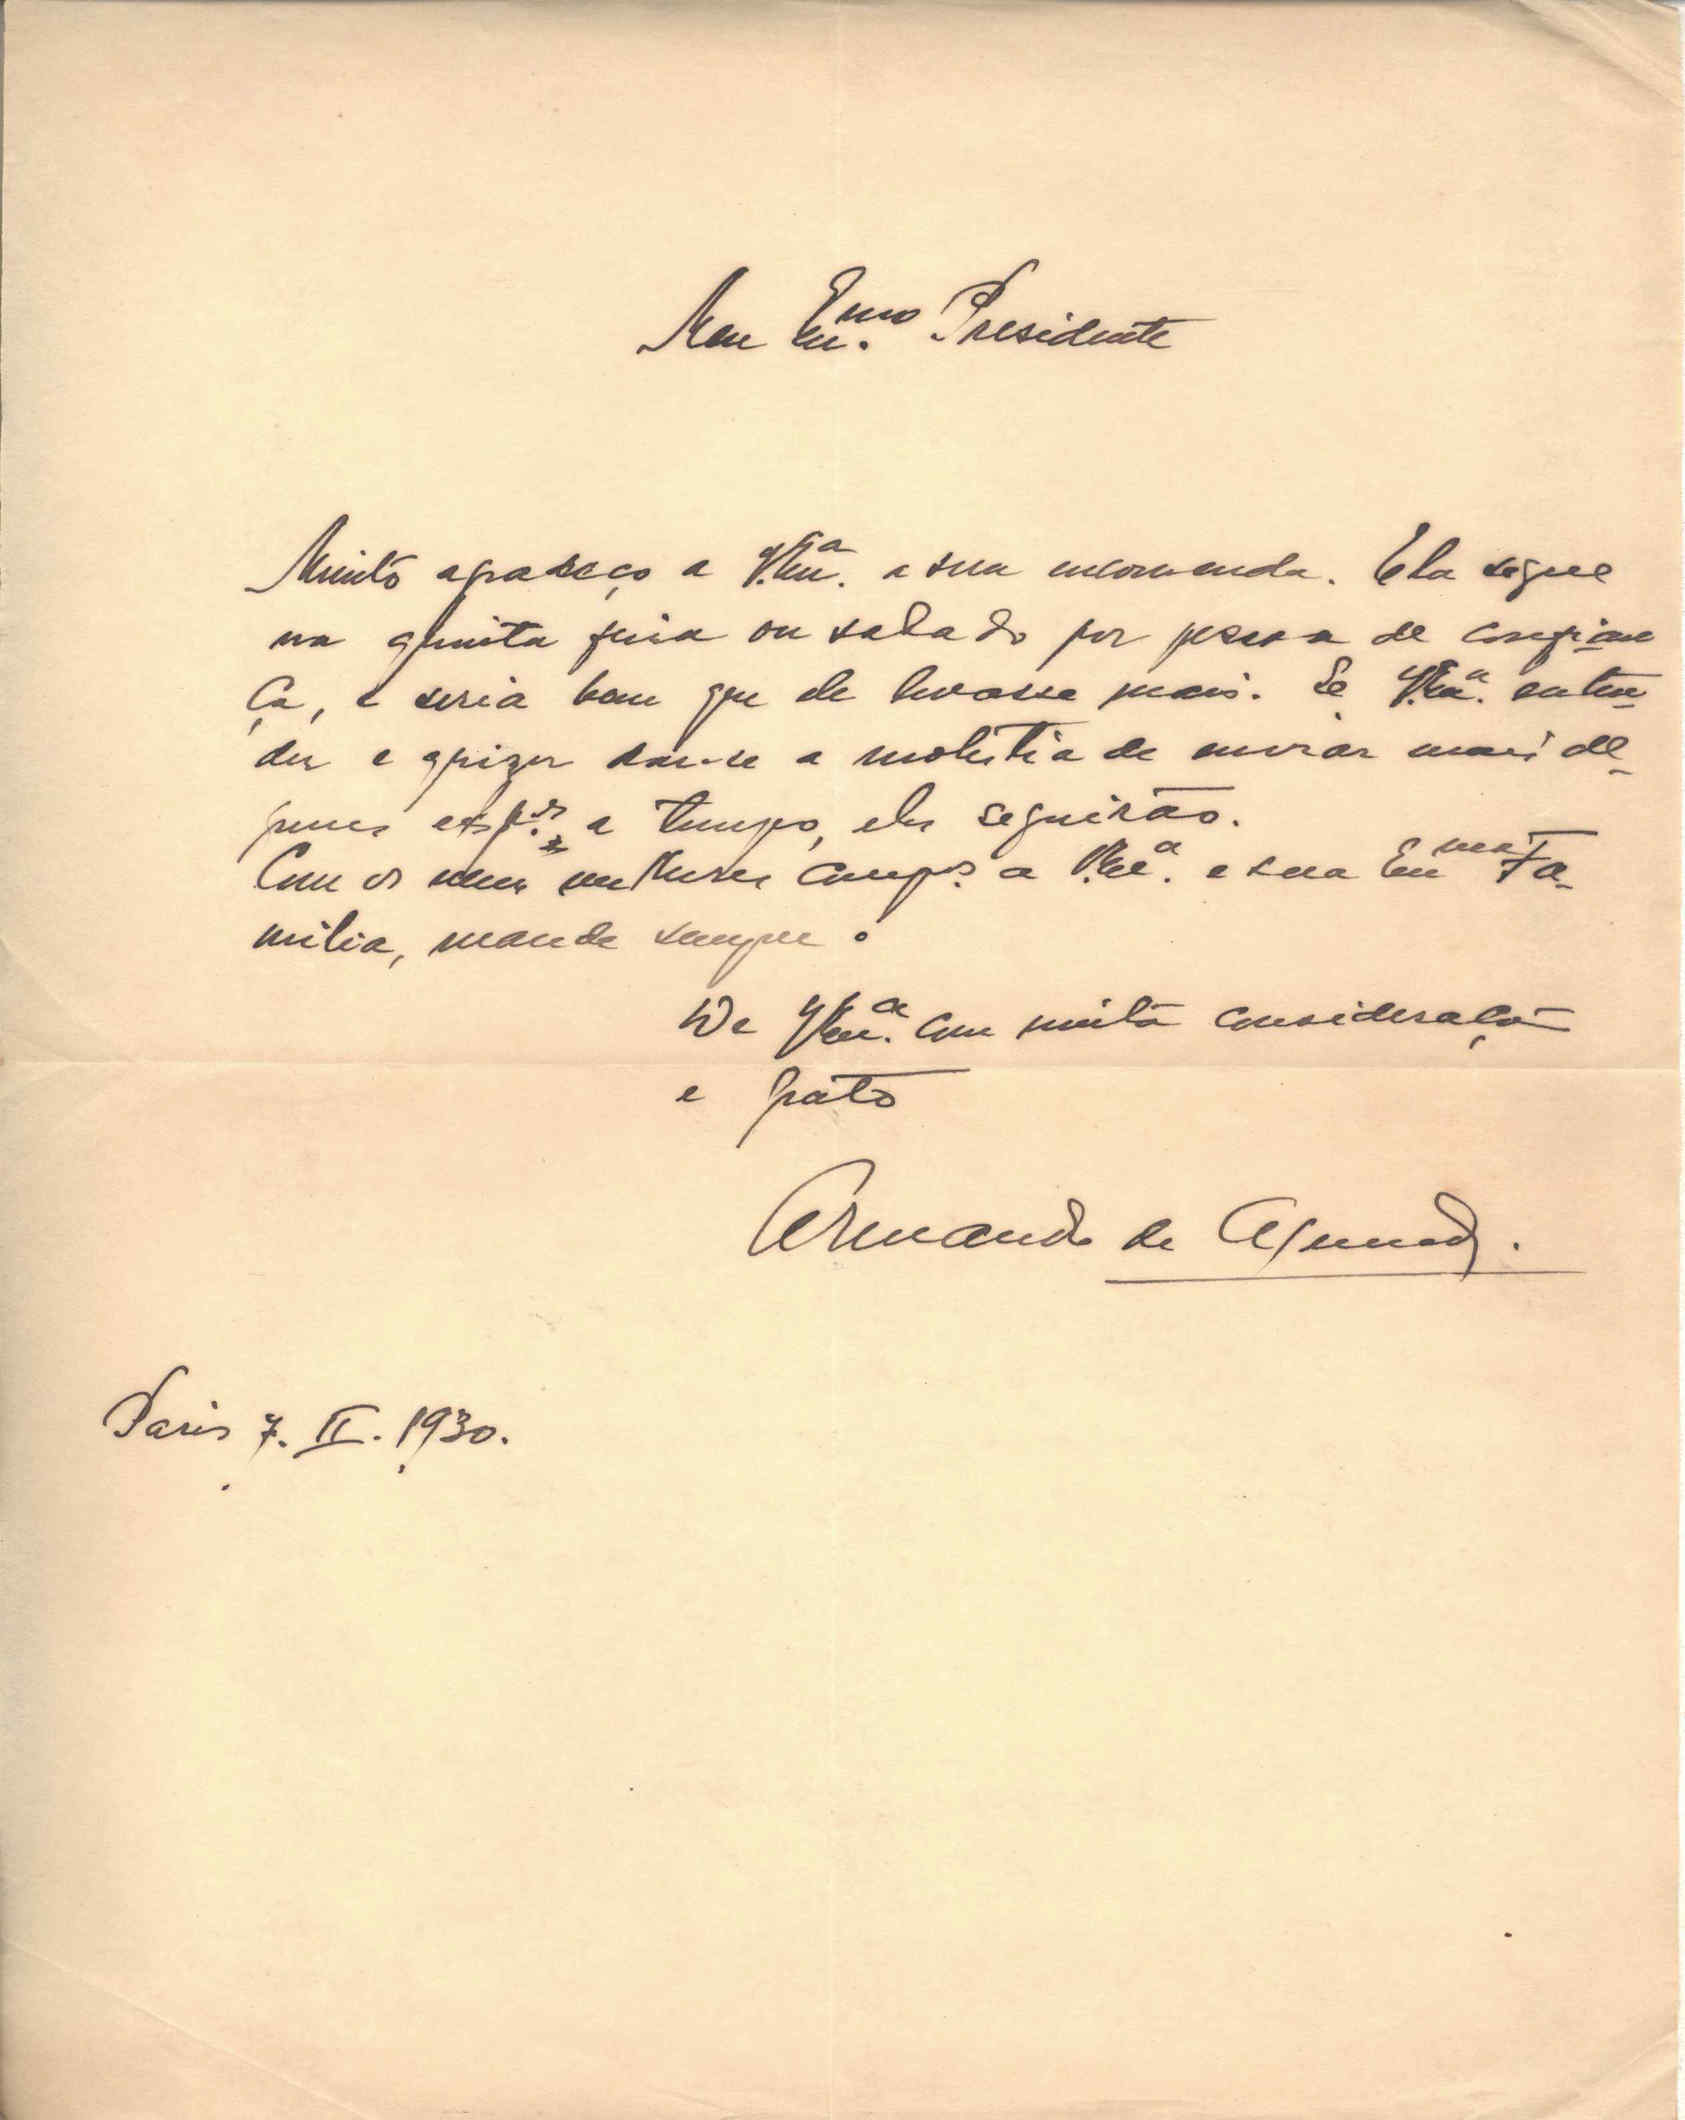 Meu Ex.mo Presidente
Muito agradeço a V.Ex.a a sua encomenda. Ela segue
na quinta feira ou sabado por pessoa de confian
ça, e seria bom que ele levasse mais. Se V.Ex.a enten-
der e quizer dar-se a molestia de enviar mais al-
guns a tempo, eles seguirão.
Com os meus melhores cump.os a V.Ex.a e sua Ex.ma Fa-
milia, mande sempre.
De V.Ex.a com muita consideração
e grato
Armando de
Paris 7. II. 1930.